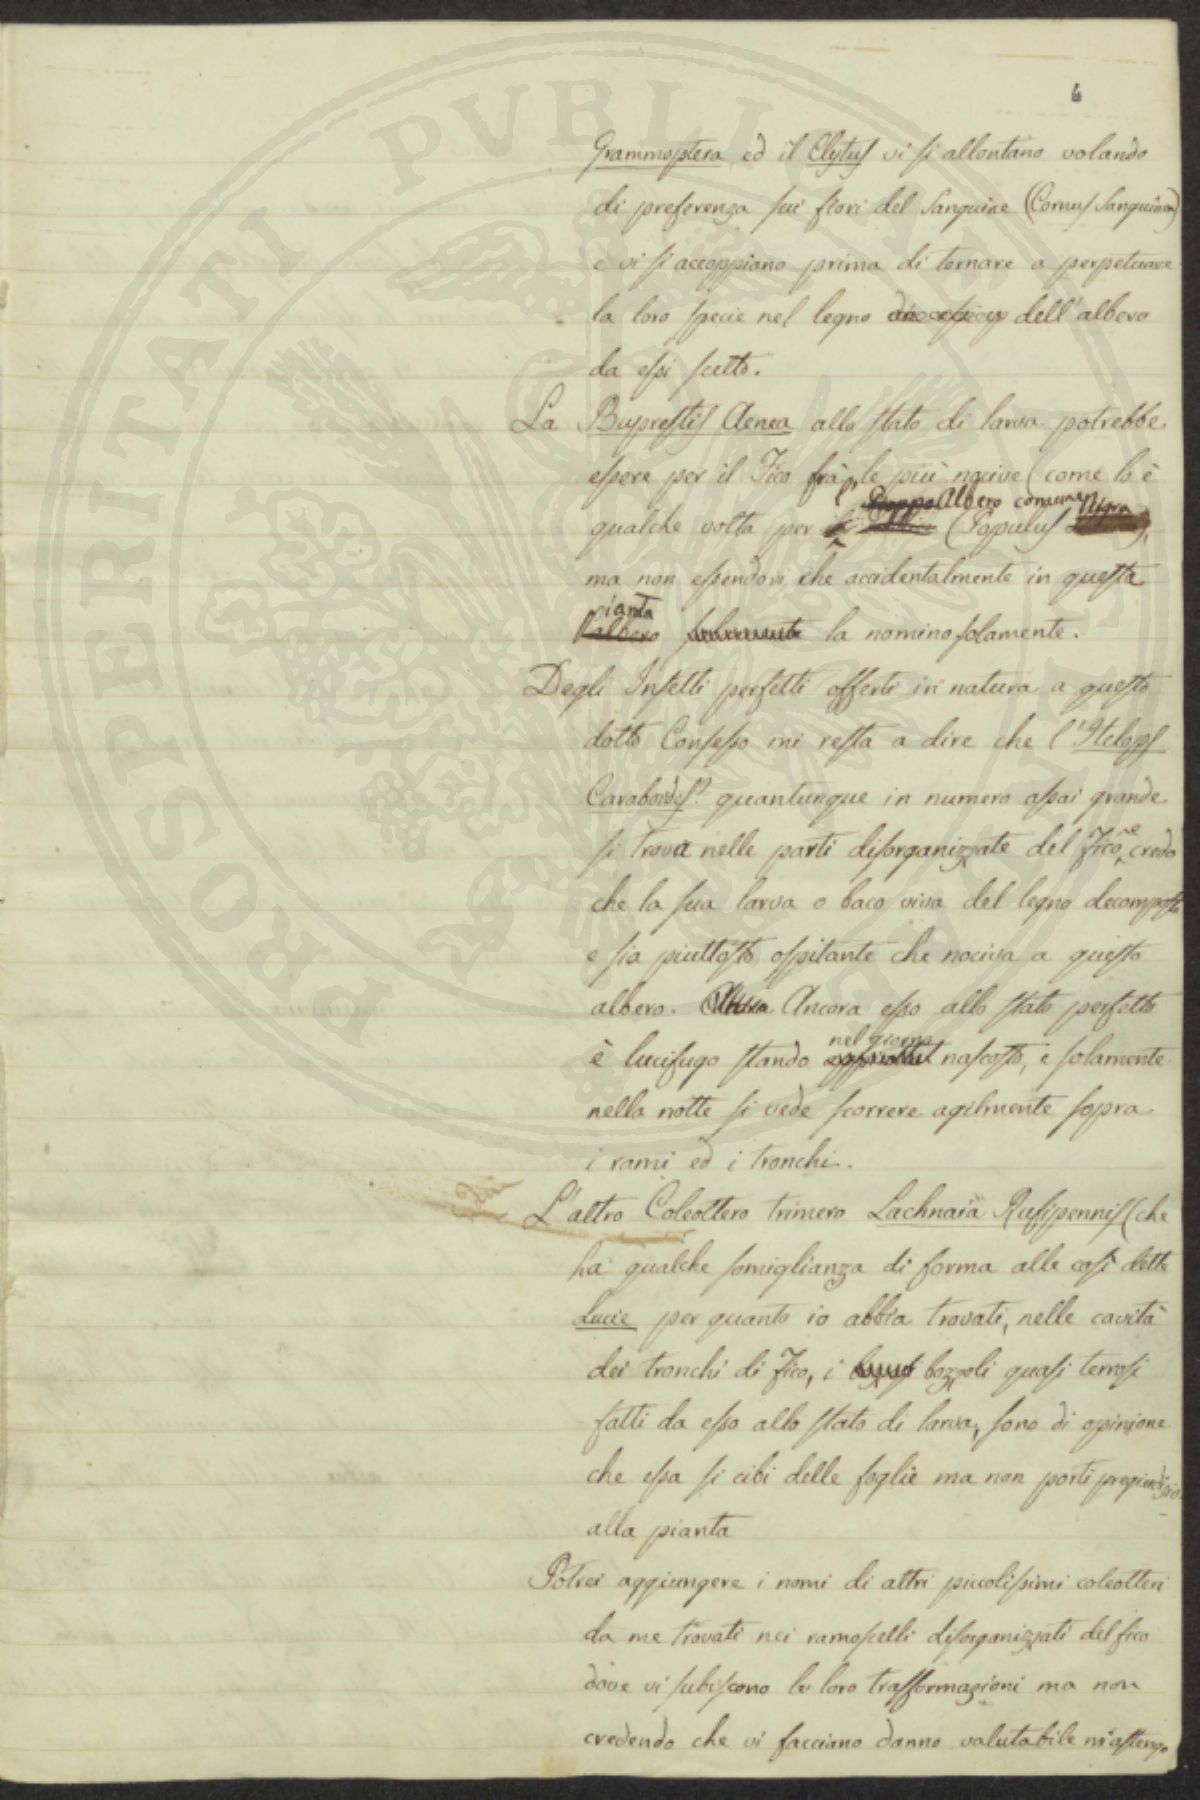 6
Grammoptera ed il Clytus vi si allontano volando
di preferenza sui fiori del Sanguine (Cornus Sanguinea)
e vi si accoppiano prima di tornare a perpetuare
la loro specie nel legno dell'albero
da essi scelto.
La Buprestis Aenea allo stato di larva potrebbe
essere per il Fico frà le più nocive (come lo è
Albero comune Nigra
qualche volta per (Populus ),
ma non essendovi che accidentalmente in questa
pianta
albero solamente la nomino solamente.
Degli Insetti perfetti offerti in natura a questo
dotto Consesso mi resta a dire che l'Helops
Caraboides? quantunque in numero assai grande
si trova nelle parti disorganizzate del Fico ne credo
che la sua larva o baco viva del legno decomposto
e sia piuttosto ospitante che nociva a questo
albero. Ancora esso allo stato perfetto
nel giorno
è lucifugo stando nascosto, e solamente
nella notte si vede scorrere agilmente sopra
i rami ed i tronchi.
L'altro Coleottero trimero Lachnaia Rufipennis (che
ha qualche somiglianza di forma alle così dette
Lucie per quanto io abbia trovati, nelle cavità
dei tronchi di Fico, i bozzoli quasi terrosi
fatti da esso allo stato di larva, sono di opinione
che essa si cibi delle foglie ma non porti pregiudizio
alla pianta
Potrei aggiungere i nomi di altri piccolissimi coleotteri
da me trovati nei ramoscelli disorganizzati del fico
dove vi subiscono le loro trasformazioni ma non
credendo che vi facciano danno valutabile m'astengo
PROSPERITATI PVBLICAE